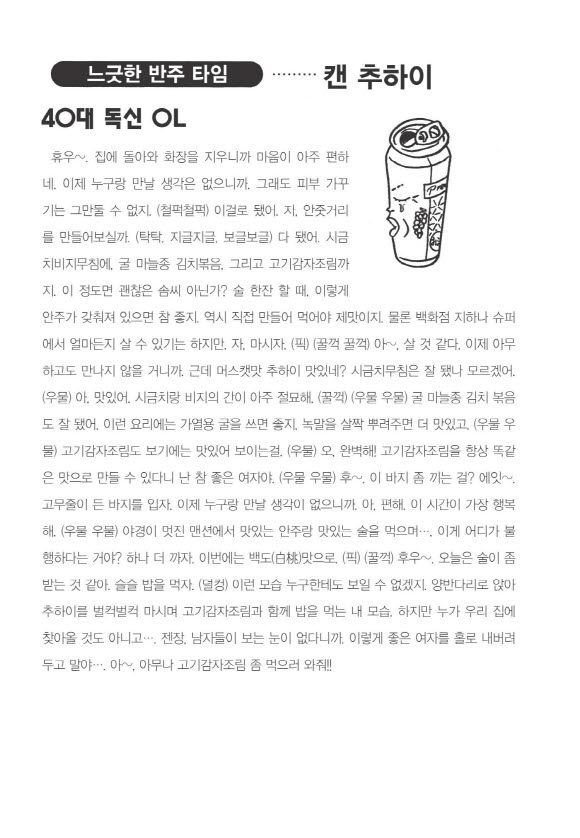 느긋한 반주 타임 ········· 캔 추하이
40대 독신 OL
휴우~. 집에 돌아와 화장을 지우니까 마음이 아주 편하
네. 이제 누구랑 만날 생각은 없으니까. 그래도 피부 가꾸
기는 그만둘 수 없지. (철퍽철퍽) 이걸로 됐어. 자, 안줏거리
를 만들어보실까. (탁탁, 지글지글, 보글보글) 다 됐어. 시금
치비지무침에, 굴 마늘종 김치볶음, 그리고 고기감자조림까
지. 이 정도면 괜찮은 솜씨 아닌가? 술 한잔 할 때, 이렇게
안주가 갖춰져 있으면 참 좋지. 역시 직접 만들어 먹어야 제맛이지. 물론 백화점 지하나 슈퍼
에서 얼마든지 살 수 있기는 하지만. 자, 마시자. (픽) (꿀꺽 꿀꺽) 아~, 살 것 같다. 이제 아무
하고도 만나지 않을 거니까. 근데 머스캣맛 추하이 맛있네? 시금치무침은 잘 됐나 모르겠어.
(우물) 아, 맛있어. 시금치랑 비지의 간이 아주 절묘해. (꿀꺽) (우물 우물) 굴 마늘종 김치 볶음
도 잘 됐어. 이런 요리에는 가열용 굴을 쓰면 좋지. 녹말을 살짝 뿌려주면 더 맛있고. (우물 우
물) 고기감자조림도 보기에는 맛있어 보이는걸. (우물) 오, 완벽해! 고기감자조림을 항상 똑같
은 맛으로 만들 수 있다니 난 참 좋은 여자야. (우물 우물) 후~. 이 바지 좀 끼는 걸? 에잇~.
고무줄이 든 바지를 입자. 이제 누구랑 만날 생각이 없으니까. 아, 편해. 이 시간이 가장 행복
해. (우물 우물) 야경이 멋진 맨션에서 맛있는 안주랑 맛있는 술을 먹으며…. 이게 어디가 불
행하다는 거야? 하나 더 까자. 이번에는 백도(白桃)맛으로. (픽) (꿀꺽) 후우~. 오늘은 술이 좀
받는 것 같아. 슬슬 밥을 먹자. (덜컹) 이런 모습 누구한테도 보일 수 없겠지. 양반다리로 앉아
추하이를 벌컥벌컥 마시며 고기감자조림과 함께 밥을 먹는 내 모습. 하지만 누가 우리 집에
찾아올 것도 아니고…. 젠장, 남자들이 보는 눈이 없다니까. 이렇게 좋은 여자를 홀로 내버려
두고 말야…. 아~, 아무나 고기감자조림 좀 먹으러 와줘!!